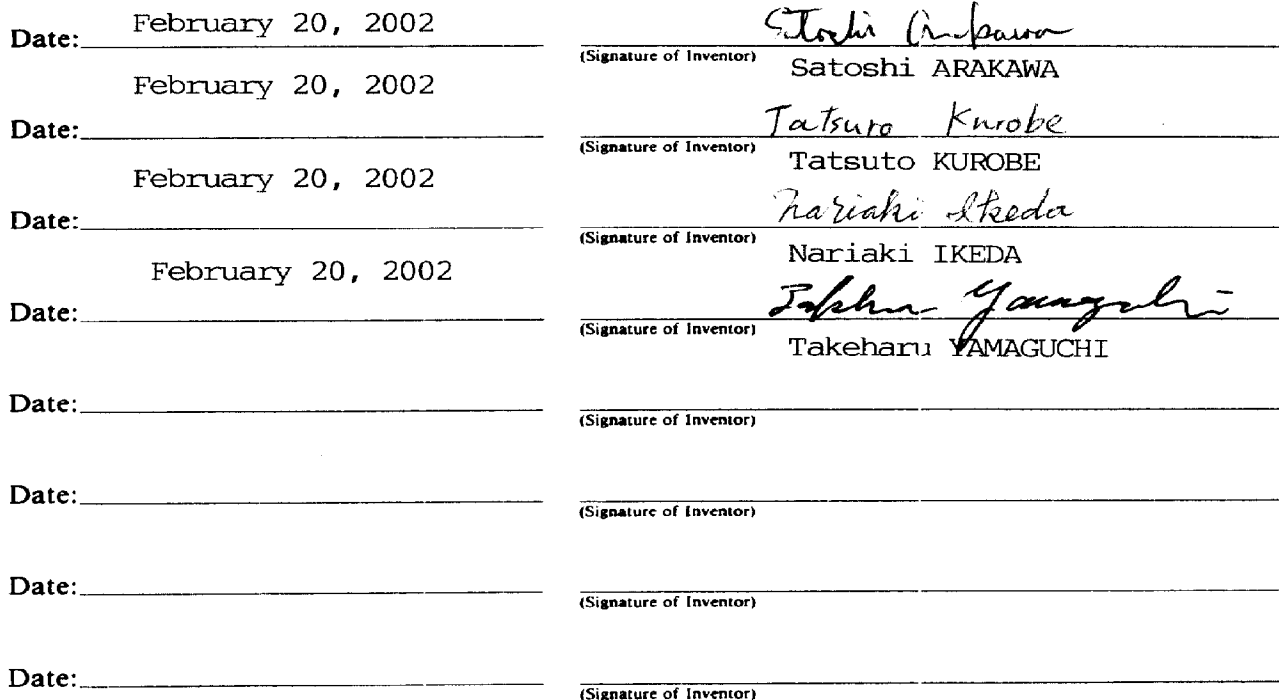 Date: February 20, 2002
(Signature of Inventor)
Satoshi ARAKAWA
February 20, 2002
Tatsuro Kurobe
Date:
(Signature of Inventor)
Tatsuto KUROBE
February 20, 2002
Nariaki Ikeda
Date:
(Signature of Inventor)
Nariaki IKEDA
February 20, 2002
Yamaguchi
Date:
(Signature of Inventor)
Takeharu YAMAGUCHI
Date:
(Signature of Inventor)
Date:
(Signature of Inventor)
Date:
(Signature of Inventor)
Date:
(Signature of Inventor)